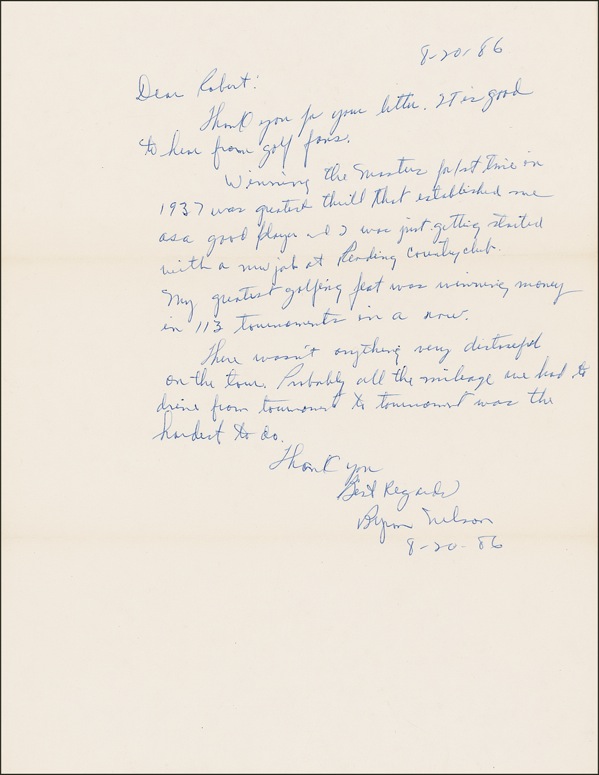 8-20-86
Dear Robert:
Thank you for your letter. It is good
to hear from golf fans.
Winning the Masters for 1st time in
1937 was greatest thrill that established me
as a good player and I was just getting started
with a new job at Reading Country club.
My greatest golfing feat was winning money
in 113 tournaments in a row.
There wasn't anything very distasteful
on the tour. Probably all the mileage we had to
drive from tournament to tournament was the
hardest to do.
Thank you
Best Regards
Byron Nelson
8-20-86